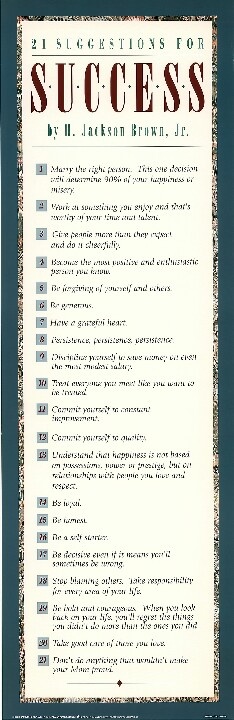 21 SUGGESTIONS FOR
S·U·C·C·E·S·S
by H. Jackson Brown, Jr.
1 Marry the right person. This one decision
will determine 90% of your happiness or
misery.
2 Work at something you enjoy and that's
worthy of your time and talent.
3 Give people more than they expect
and do it cheerfully.
4 Become the most positive and enthusiastic
person you know.
5 Be forgiving of yourself and others.
6 Be generous.
7 Have a grateful heart.
8 Persistence, persistence, persistence.
9 Discipline yourself to save money on even
the most modest salary.
10 Treat everyone you meet like you want to
be treated.
11 Commit yourself to constant
improvement.
12 Commit yourself to quality.
13 Understand that happiness is not based
on possessions, power or prestige, but on
relationships with people you love and
respect.
14 Be loyal.
15 Be honest.
16 Be a self starter.
17 Be decisive even if it means you'll
sometimes be wrong.
18 Stop blaming others. Take responsibility
for every area of your life.
19 Be bold and courageous. When you look
back on your life, you'll regret the things
you didn't do more than the ones you did.
20 Take good care of those you love.
21 Don't do anything that wouldn't make
your Mom proud.